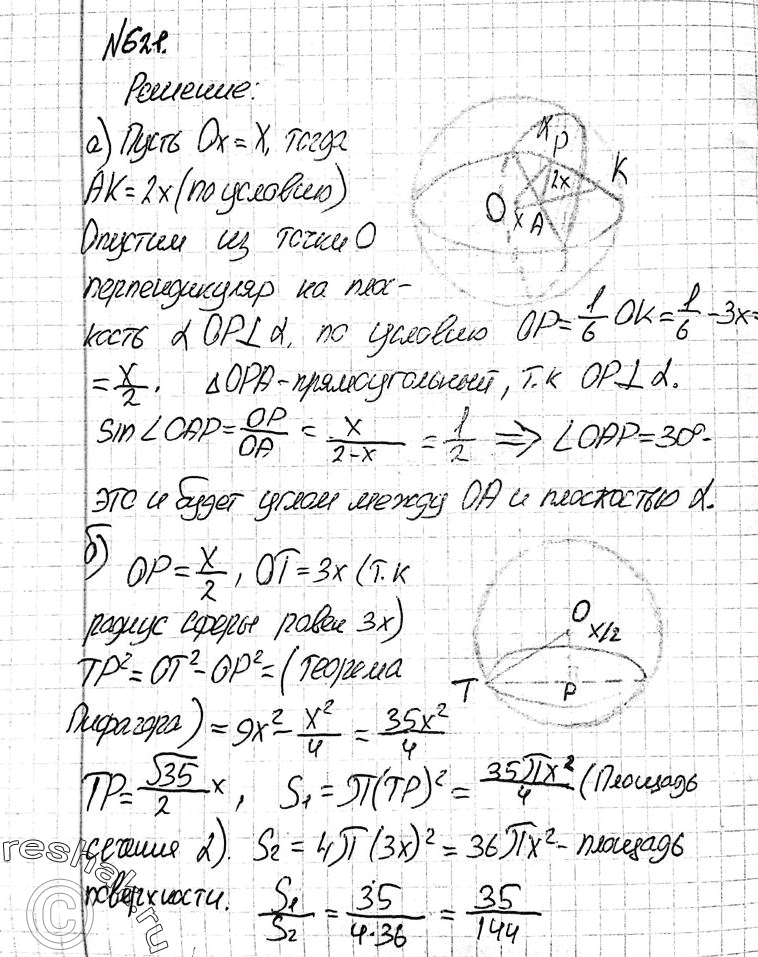 №621.
Решение:
а) Пусть Ox = X, тогда
AK = 2x (по условию)
Опустим из точки O
перпендикуляр на плос-
кость α OP⊥α, по условию OP = 1/6 OK = 1/6 - 3x =
= x/2. △OPA - прямоугольный, т.к OP⊥α.
sin∠OAP = OP/OA = x/2-x = 1/2 ⇒ ∠OAP = 30° -
это и будет углом между OA и плоскостью α.
X
P
K
2x
O
x
A
б) OP = x/2, OT = 3x (т.к
радиус сферы равен 3x)
TP² = OT² - OP² = (теорема
Пифагора) = 9x² - x²/4 = 35x²/4
TP = √35/2 x, S₁ = π(TP)² = 35πx²/4 (площадь
сечения α). S₂ = 4π(3x)² = 36πx² - площадь
поверхности. S₁/S₂ = 35/4·36 = 35/144
O
x/2
T
P
reshak.ru
©